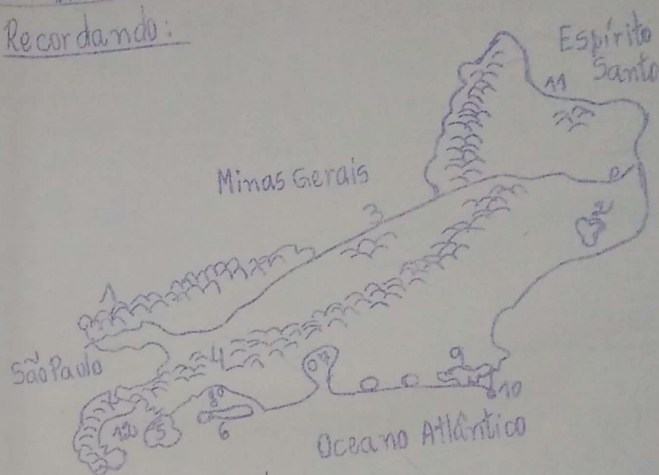 Recordando:
Espírito
Santo
11
Minas Gerais
3
2
1
São Paulo
4
9
7
8
10
12
5
6
Oceano Atlântico